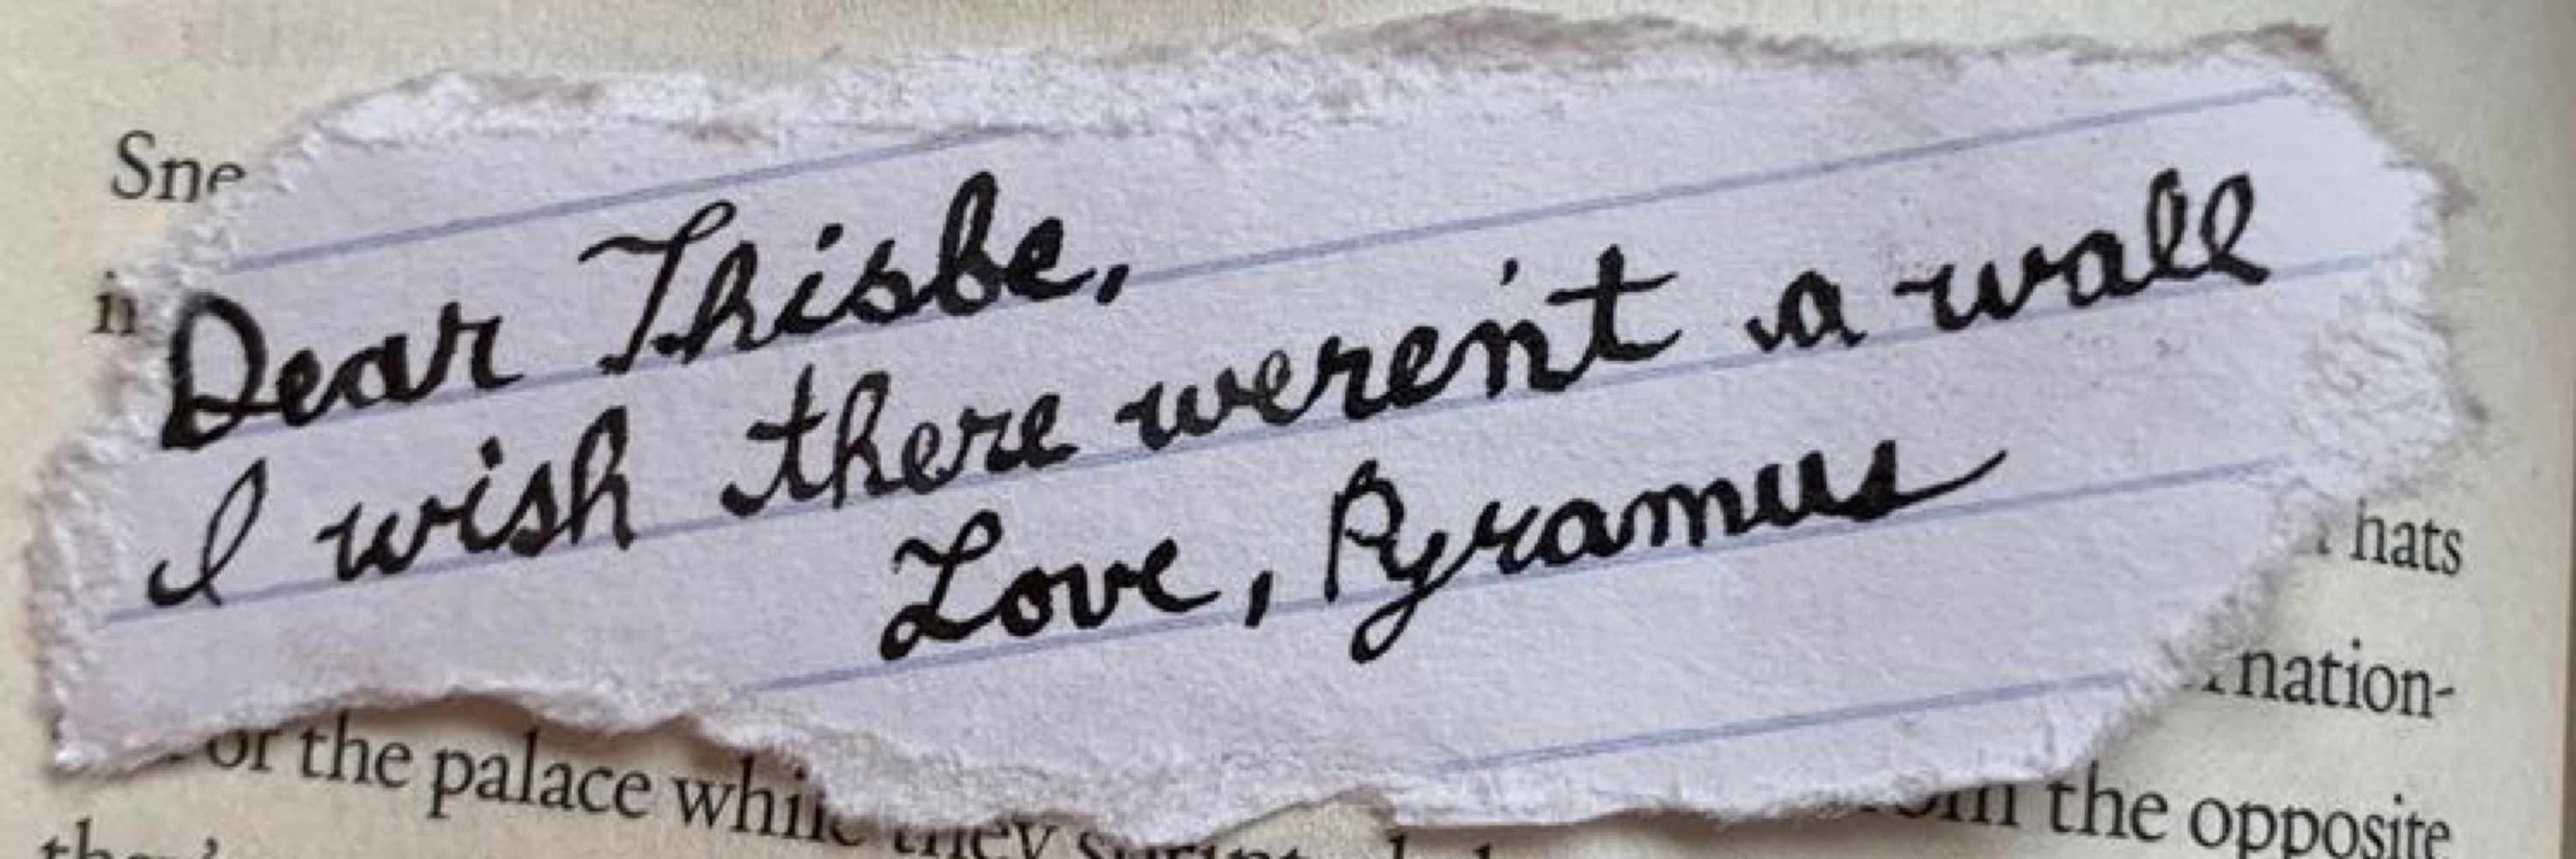 Sne
in
Dear Thisbe,
I wish there weren't a wall
Love, Pyramus
hats
nation-
of the palace while they
the opposite